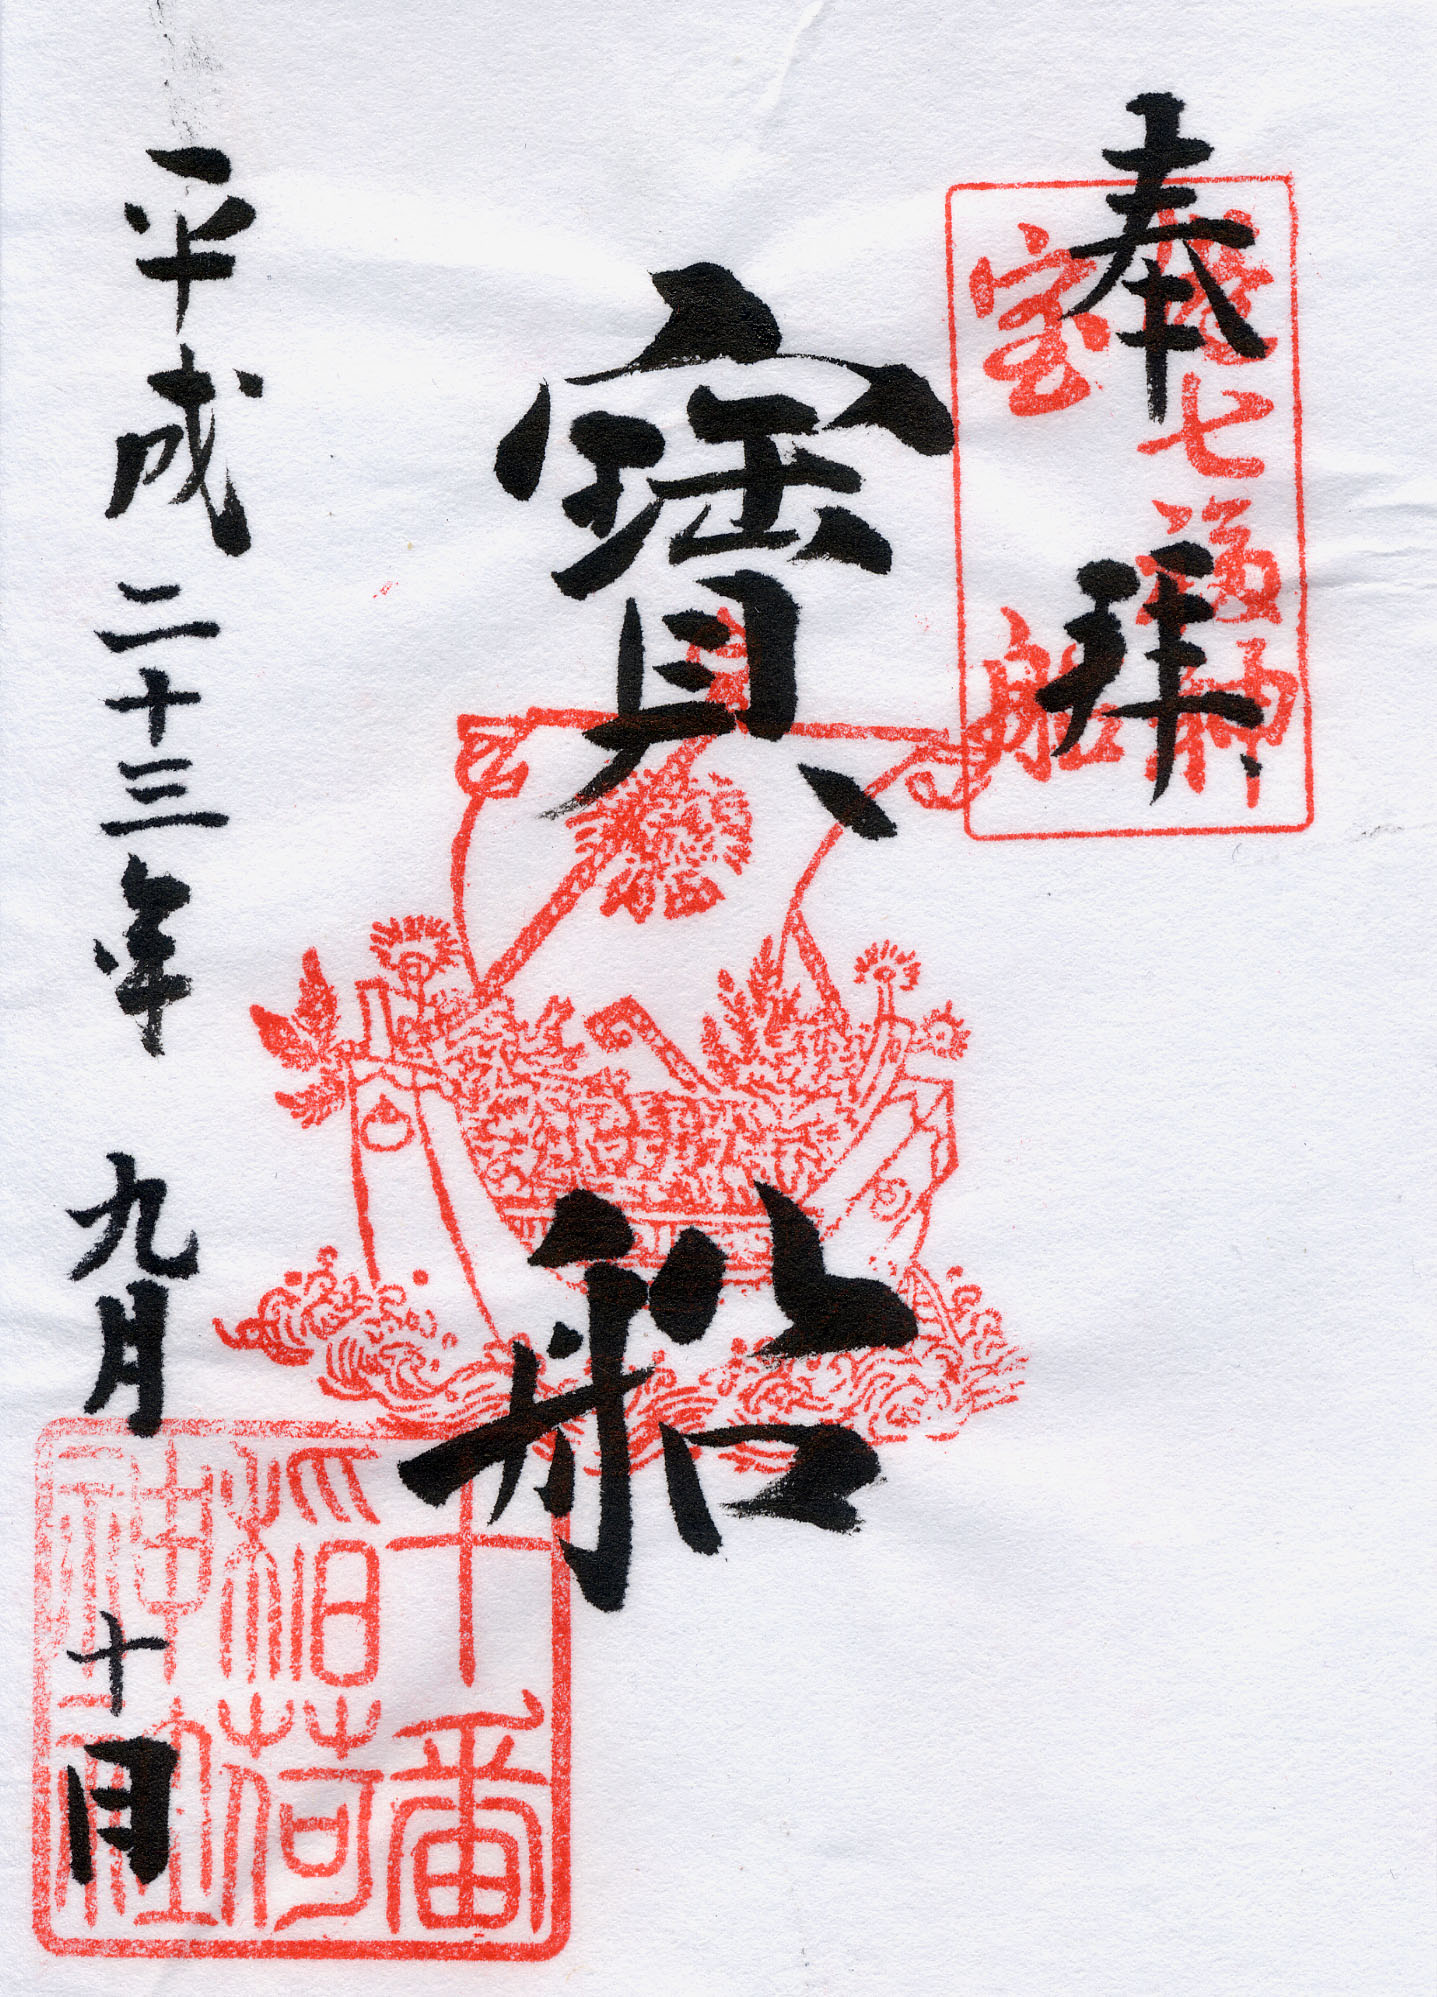 奉拝
港七福神
宝船
寳船
平成二十三年 九月 十日
十番
稲荷
神社